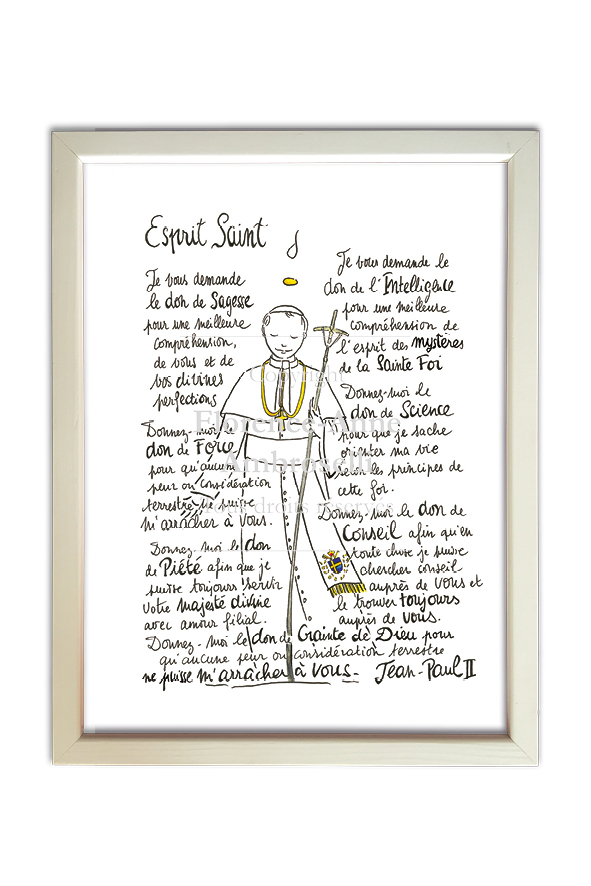 Esprit Saint
Je vous demande
le don de Sagesse
pour une meilleure
compréhension,
de vous et de
vos divines
perfections
Donnez-moi le
don de Force
pour qu'aucune
peur ou considération
terrestre ne puisse
m'arracher à Vous.
Donnez-moi le don
de Piété afin que je
puisse toujours servir
votre majesté divine
avec amour filial.
Je vous demande le
don de l'Intelligence
pour une meilleure
compréhension de
l'esprit des mystères
de la Sainte Foi
Donnez-moi le
don de Science
pour que je sache
orienter ma vie
selon les principes de
cette foi.
Donnez-moi le don de
Conseil afin qu'en
toute chose je puisse
chercher conseil
auprès de Vous et
le trouver toujours
auprès de Vous.
Donnez-moi le don de Crainte de Dieu pour
qu'aucune peur ou considération terrestre
ne puisse m'arracher à Vous. Jean-Paul II
Copyright
Florence-Anne
Ambroselli
Tous droits réservés